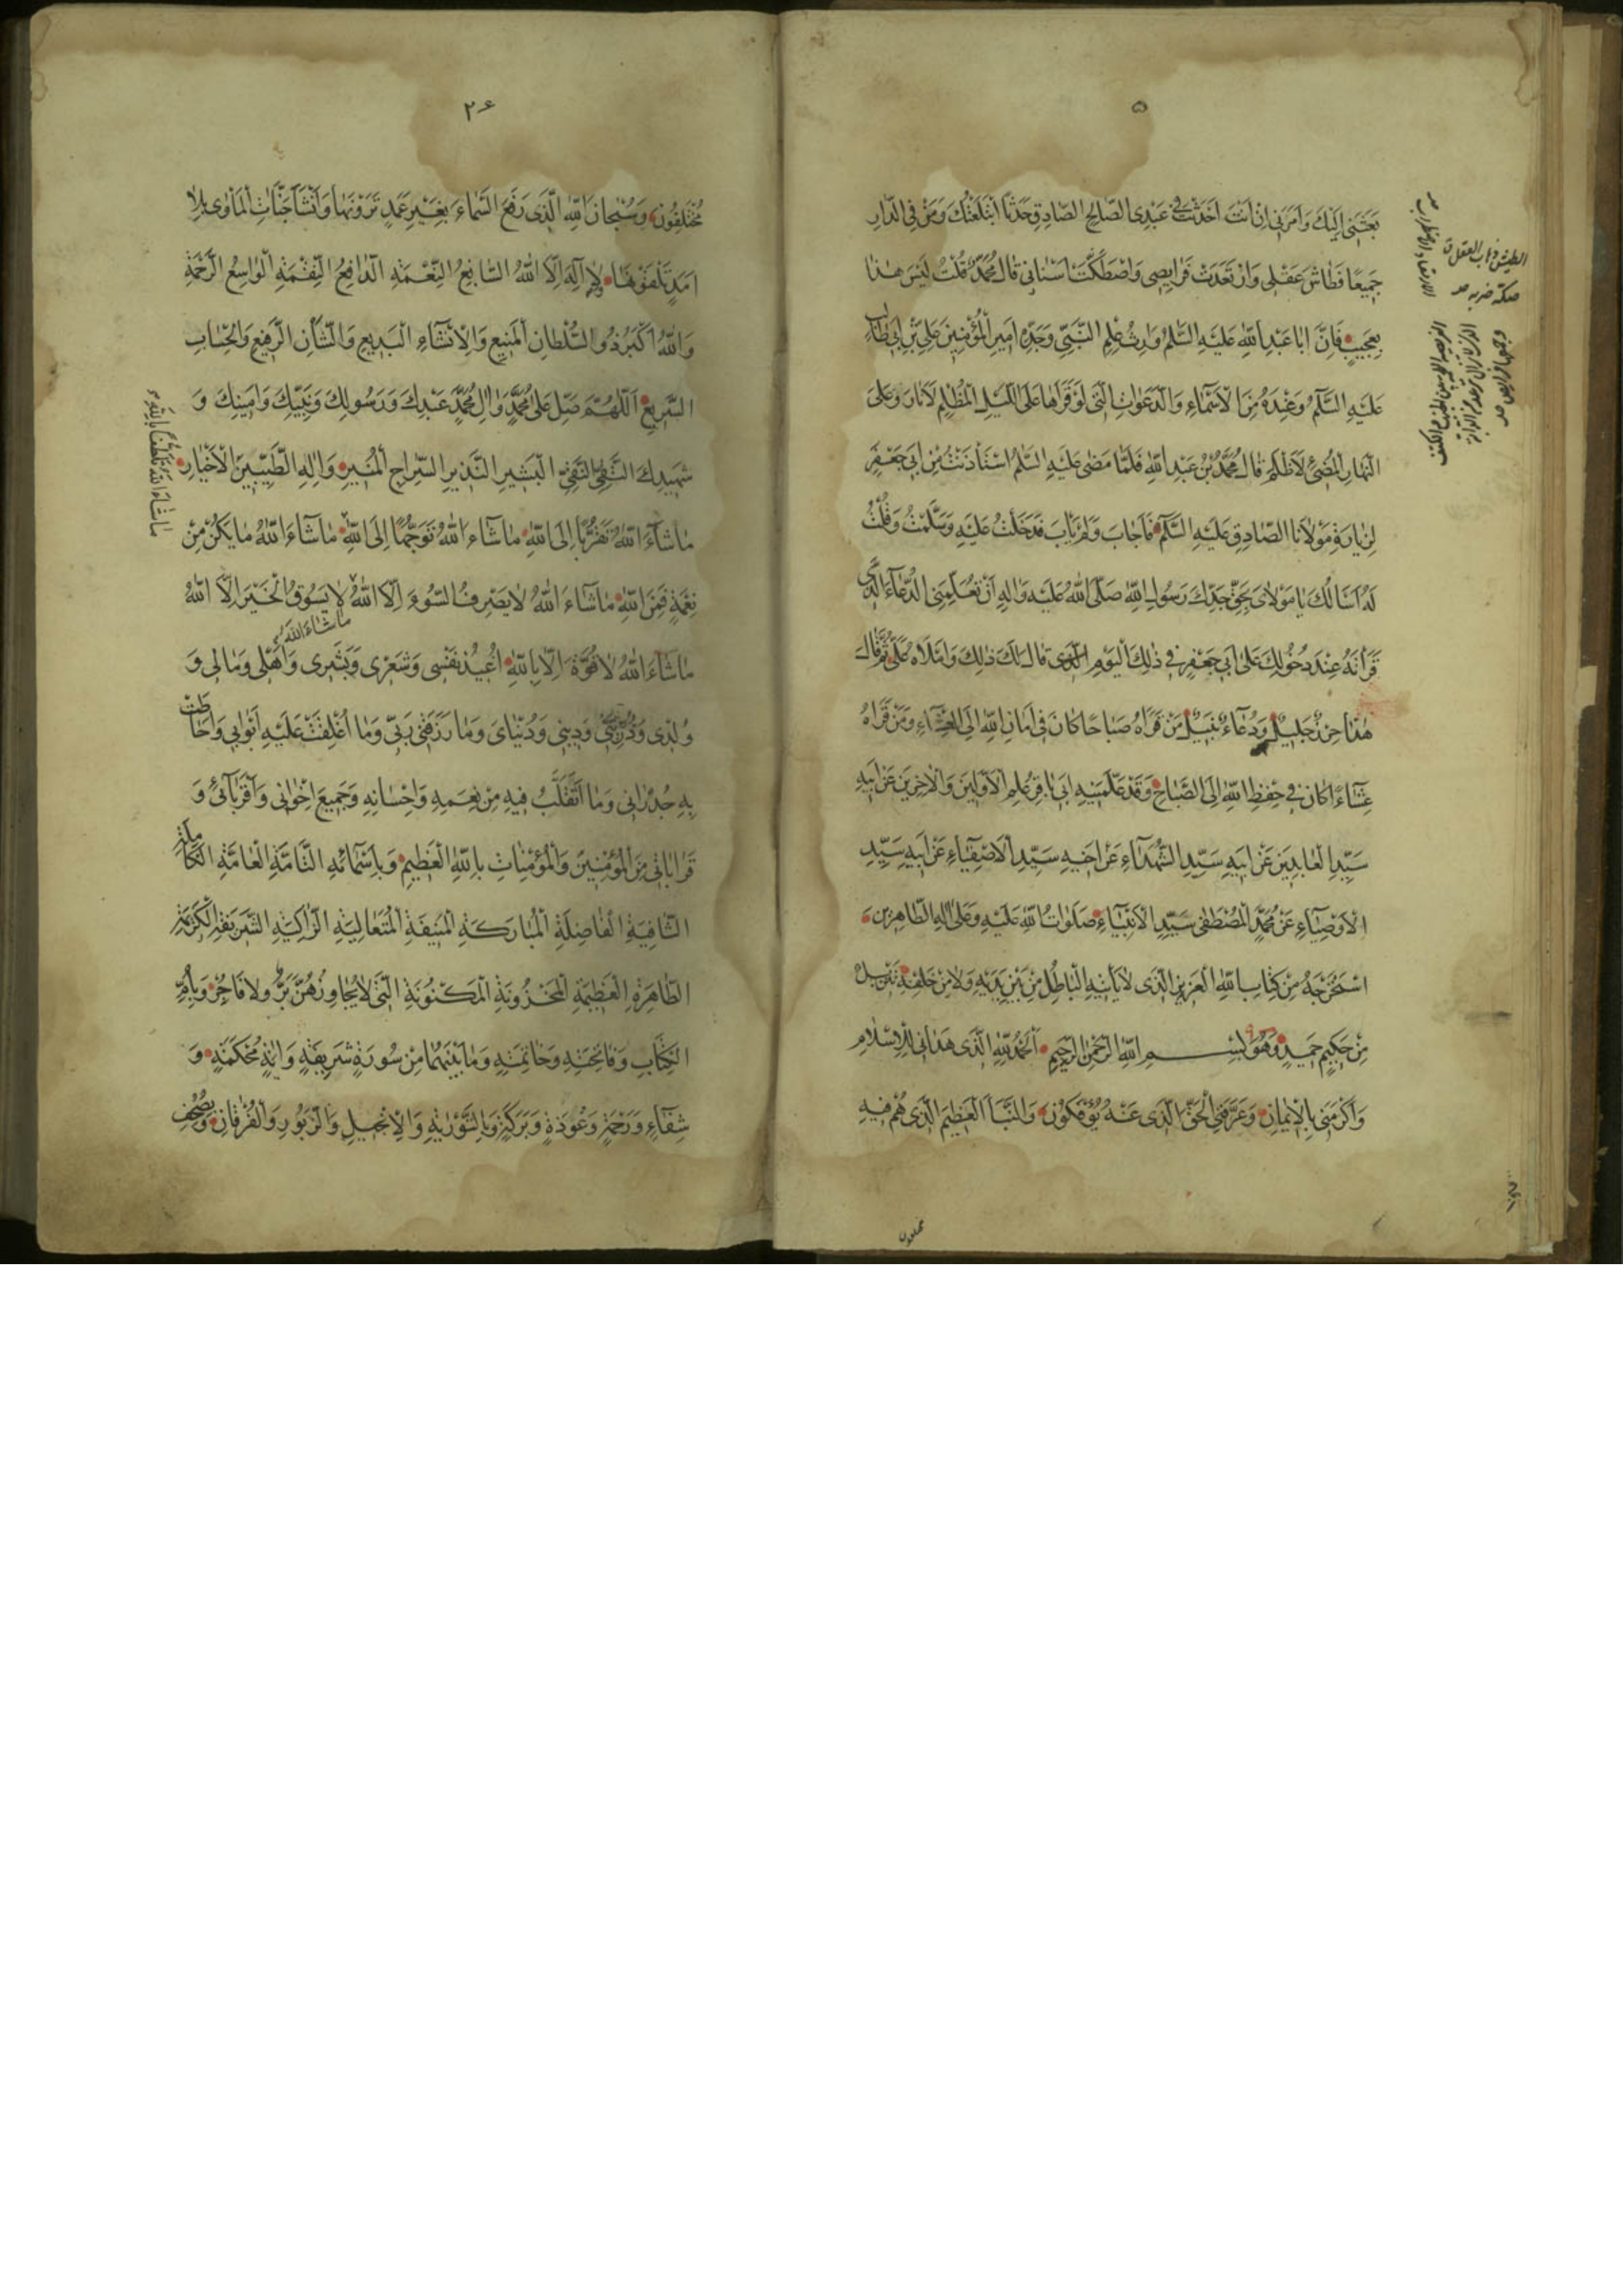 ۵
بَعَثَنِی اِلَیْكَ وَاَمَرَنِی اِنْ اَنْتَ اَحْدَثْتَ فِی عَبْدِیَ الصَّالِحِ الصَّادِقِ حَدَثًا ابْتَلَعْتُكَ وَمَنْ فِی الدَّارِ
جَمِیعًا فَطَاشَ عَقْلِی وَارْتَعَدَتْ فَرَایِصِی وَاصْطَكَّتْ اَسْنَانِی قَالَ مُحَمَّدٌ قُلْتُ لَیْسَ هٰذَا
بِعَجِیبٍ فَاِنَّ اَبَا عَبْدِ اللّٰهِ عَلَیْهِ السَّلٰمُ وَارِثُ عِلْمِ النَّبِیِّ وَجَدِّهِ اَمِیرِ الْمُؤْمِنِینَ عَلِیِّ بْنِ اَبِی طَالِبٍ
عَلَیْهِ السَّلٰمُ وَعِنْدَهُ مِنَ الْاَسْمَاءِ وَالدَّعَوَاتِ الَّتِی لَوْ قَرَاَهَا عَلَی اللَّیْلِ الْمُظْلِمِ لَاَنَارَ وَعَلَی
النَّهَارِ الْمُضِیءِ لَاَظْلَمَ قَالَ مُحَمَّدُ بْنُ عَبْدِ اللّٰهِ فَلَمَّا مَضٰی عَلَیْهِ السَّلٰمُ اسْتَأْذَنْتُ مِنْ اَبِی جَعْفَرٍ
لِزِیَارَةِ مَوْلَانَا الصَّادِقِ عَلَیْهِ السَّلٰمُ فَاَجَابَ وَلَمْ یَأْبَ فَدَخَلْتُ عَلَیْهِ وَسَلَّمْتُ وَقُلْتُ
لَهُ اَسْاَلُكَ یَا مَوْلَایَ بِحَقِّ جَدِّكَ رَسُولِ اللّٰهِ صَلَّی اللّٰهُ عَلَیْهِ وَاٰلِهِ اَنْ تُعَلِّمَنِی الدُّعَاءَ الَّذِی
قَرَأْتَهُ عِنْدَ دُخُولِكَ عَلٰی اَبِی جَعْفَرٍ فِی ذٰلِكَ الْیَوْمِ قَالَ لَكَ ذٰلِكَ وَامْلَاهُ عَلَیَّ ثُمَّ قَالَ
هٰذَا حِرْزٌ جَلِیلٌ وَدُعَاءٌ نَبِیلٌ مَنْ قَرَاَهُ صَبَاحًا كَانَ فِی اَمَانِ اللّٰهِ اِلَی الْعِشَاءِ وَمَنْ قَرَاَهُ
عِشَاءً كَانَ فِی حِفْظِ اللّٰهِ اِلَی الصَّبَاحِ وَقَدْ عَلَّمَنِیهِ اَبِی بَاقِرُ عِلْمِ الْاَوَّلِینَ وَالْاٰخِرِینَ عَنْ اَبِیهِ
سَیِّدِ الْعَابِدِینَ عَنْ اَبِیهِ سَیِّدِ الشُّهَدَاءِ عَنْ اَخِیهِ سَیِّدِ الْاَصْفِیَاءِ عَنْ اَبِیهِ سَیِّدِ
الْاَوْصِیَاءِ عَنْ مُحَمَّدٍ الْمُصْطَفٰی سَیِّدِ الْاَنْبِیَاءِ صَلَوَاتُ اللّٰهِ عَلَیْهِ وَعَلٰی اٰلِهِ الطَّاهِرِینَ
اسْتَخْرَجَهُ مِنْ كِتَابِ اللّٰهِ الْعَزِیزِ الَّذِی لَا یَأْتِیهِ الْبَاطِلُ مِنْ بَیْنِ یَدَیْهِ وَلَا مِنْ خَلْفِهِ تَنْزِیلٌ
مِنْ حَكِیمٍ حَمِیدٍ وَهُوَ بِسْمِ اللّٰهِ الرَّحْمٰنِ الرَّحِیمِ اَلْحَمْدُ لِلّٰهِ الَّذِی هَدَانِی لِلْاِسْلَامِ
وَاَكْرَمَنِی بِالْاِیمَانِ وَعَرَّفَنِی الْحَقَّ الَّذِی عَنْهُ یُؤْفَكُونَ وَالنَّبَأَ الْعَظِیمَ الَّذِی هُمْ فِیهِ
الطیش ذهاب العقل
صكّه ضربه
مختلفون
۲۶
مُخْتَلِفُونَ وَسُبْحَانَ اللّٰهِ الَّذِی رَفَعَ السَّمَاءَ بِغَیْرِ عَمَدٍ تَرَوْنَهَا وَاَنْشَأَ جَنَّاتِ الْمَأْوٰی بِلَا
اَمَدٍ تَلْقَوْنَهَا وَلَا اِلٰهَ اِلَّا اللّٰهُ السَّابِغُ النِّعْمَةِ الدَّافِعُ النِّقْمَةِ الْوَاسِعُ الرَّحْمَةِ
وَاللّٰهُ اَكْبَرُ ذُو السُّلْطَانِ الْمَنِیعِ وَالْاِنْشَاءِ الْبَدِیعِ وَالشَّأْنِ الرَّفِیعِ وَالْحِسَابِ
السَّرِیعِ اَللّٰهُمَّ صَلِّ عَلٰی مُحَمَّدٍ وَاٰلِ مُحَمَّدٍ عَبْدِكَ وَرَسُولِكَ وَنَبِیِّكَ وَاَمِینِكَ وَ
شَهِیدِكَ التَّقِیِّ النَّقِیِّ الْبَشِیرِ النَّذِیرِ السِّرَاجِ الْمُنِیرِ وَاٰلِهِ الطَّیِّبِینَ الْاَخْیَارِ
مَا شَاءَ اللّٰهُ تَقَرُّبًا اِلَی اللّٰهِ مَا شَاءَ اللّٰهُ تَوَجُّهًا اِلَی اللّٰهِ مَا شَاءَ اللّٰهُ مَا یَكُنْ مِنْ
نِعْمَةٍ فَمِنَ اللّٰهِ مَا شَاءَ اللّٰهُ لَا یَصْرِفُ السُّوءَ اِلَّا اللّٰهُ لَا یَسُوقُ الْخَیْرَ اِلَّا اللّٰهُ
ما شاء الله
مَا شَاءَ اللّٰهُ لَا قُوَّةَ اِلَّا بِاللّٰهِ اُعِیذُ نَفْسِی وَشَعْرِی وَبَشَرِی وَاَهْلِی وَمَالِی وَ
وُلْدِی وَذُرِّیَّتِی وَدِینِی وَدُنْیَایَ وَمَا رَزَقَنِی رَبِّی وَمَا اُغْلِقَتْ عَلَیْهِ اَبْوَابِی وَاَحَاطَتْ
بِهِ جُدْرَانِی وَمَا اَتَقَلَّبُ فِیهِ مِنْ نِعَمِهِ وَاِحْسَانِهِ وَجَمِیعَ اِخْوَانِی وَاَقْرِبَائِی وَ
قَرَابَاتِی مِنَ الْمُؤْمِنِینَ وَالْمُؤْمِنَاتِ بِاللّٰهِ الْعَظِیمِ وَبِاَسْمَائِهِ التَّامَّةِ الْعَامَّةِ الْكَامِلَةِ
الشَّافِیَةِ الْفَاضِلَةِ الْمُبَارَكَةِ الْمُنِیفَةِ الْمُتَعَالِیَةِ الزَّاكِیَةِ الشَّرِیفَةِ الْكَرِیمَةِ
الطَّاهِرَةِ الْعَظِیمَةِ الْمَخْزُونَةِ الْمَكْنُونَةِ الَّتِی لَا یُجَاوِزُهُنَّ بَرٌّ وَلَا فَاجِرٌ وَبِاُمِّ
الْكِتَابِ وَفَاتِحَتِهِ وَخَاتِمَتِهِ وَمَا بَیْنَهُمَا مِنْ سُورَةٍ شَرِیفَةٍ وَاٰیَةٍ مُحْكَمَةٍ وَ
شِفَاءٍ وَرَحْمَةٍ وَعُوذَةٍ وَبَرَكَةٍ وَبِالتَّوْرٰیةِ وَالْاِنْجِیلِ وَالزَّبُورِ وَالْفُرْقَانِ وَبِصُحُفِ